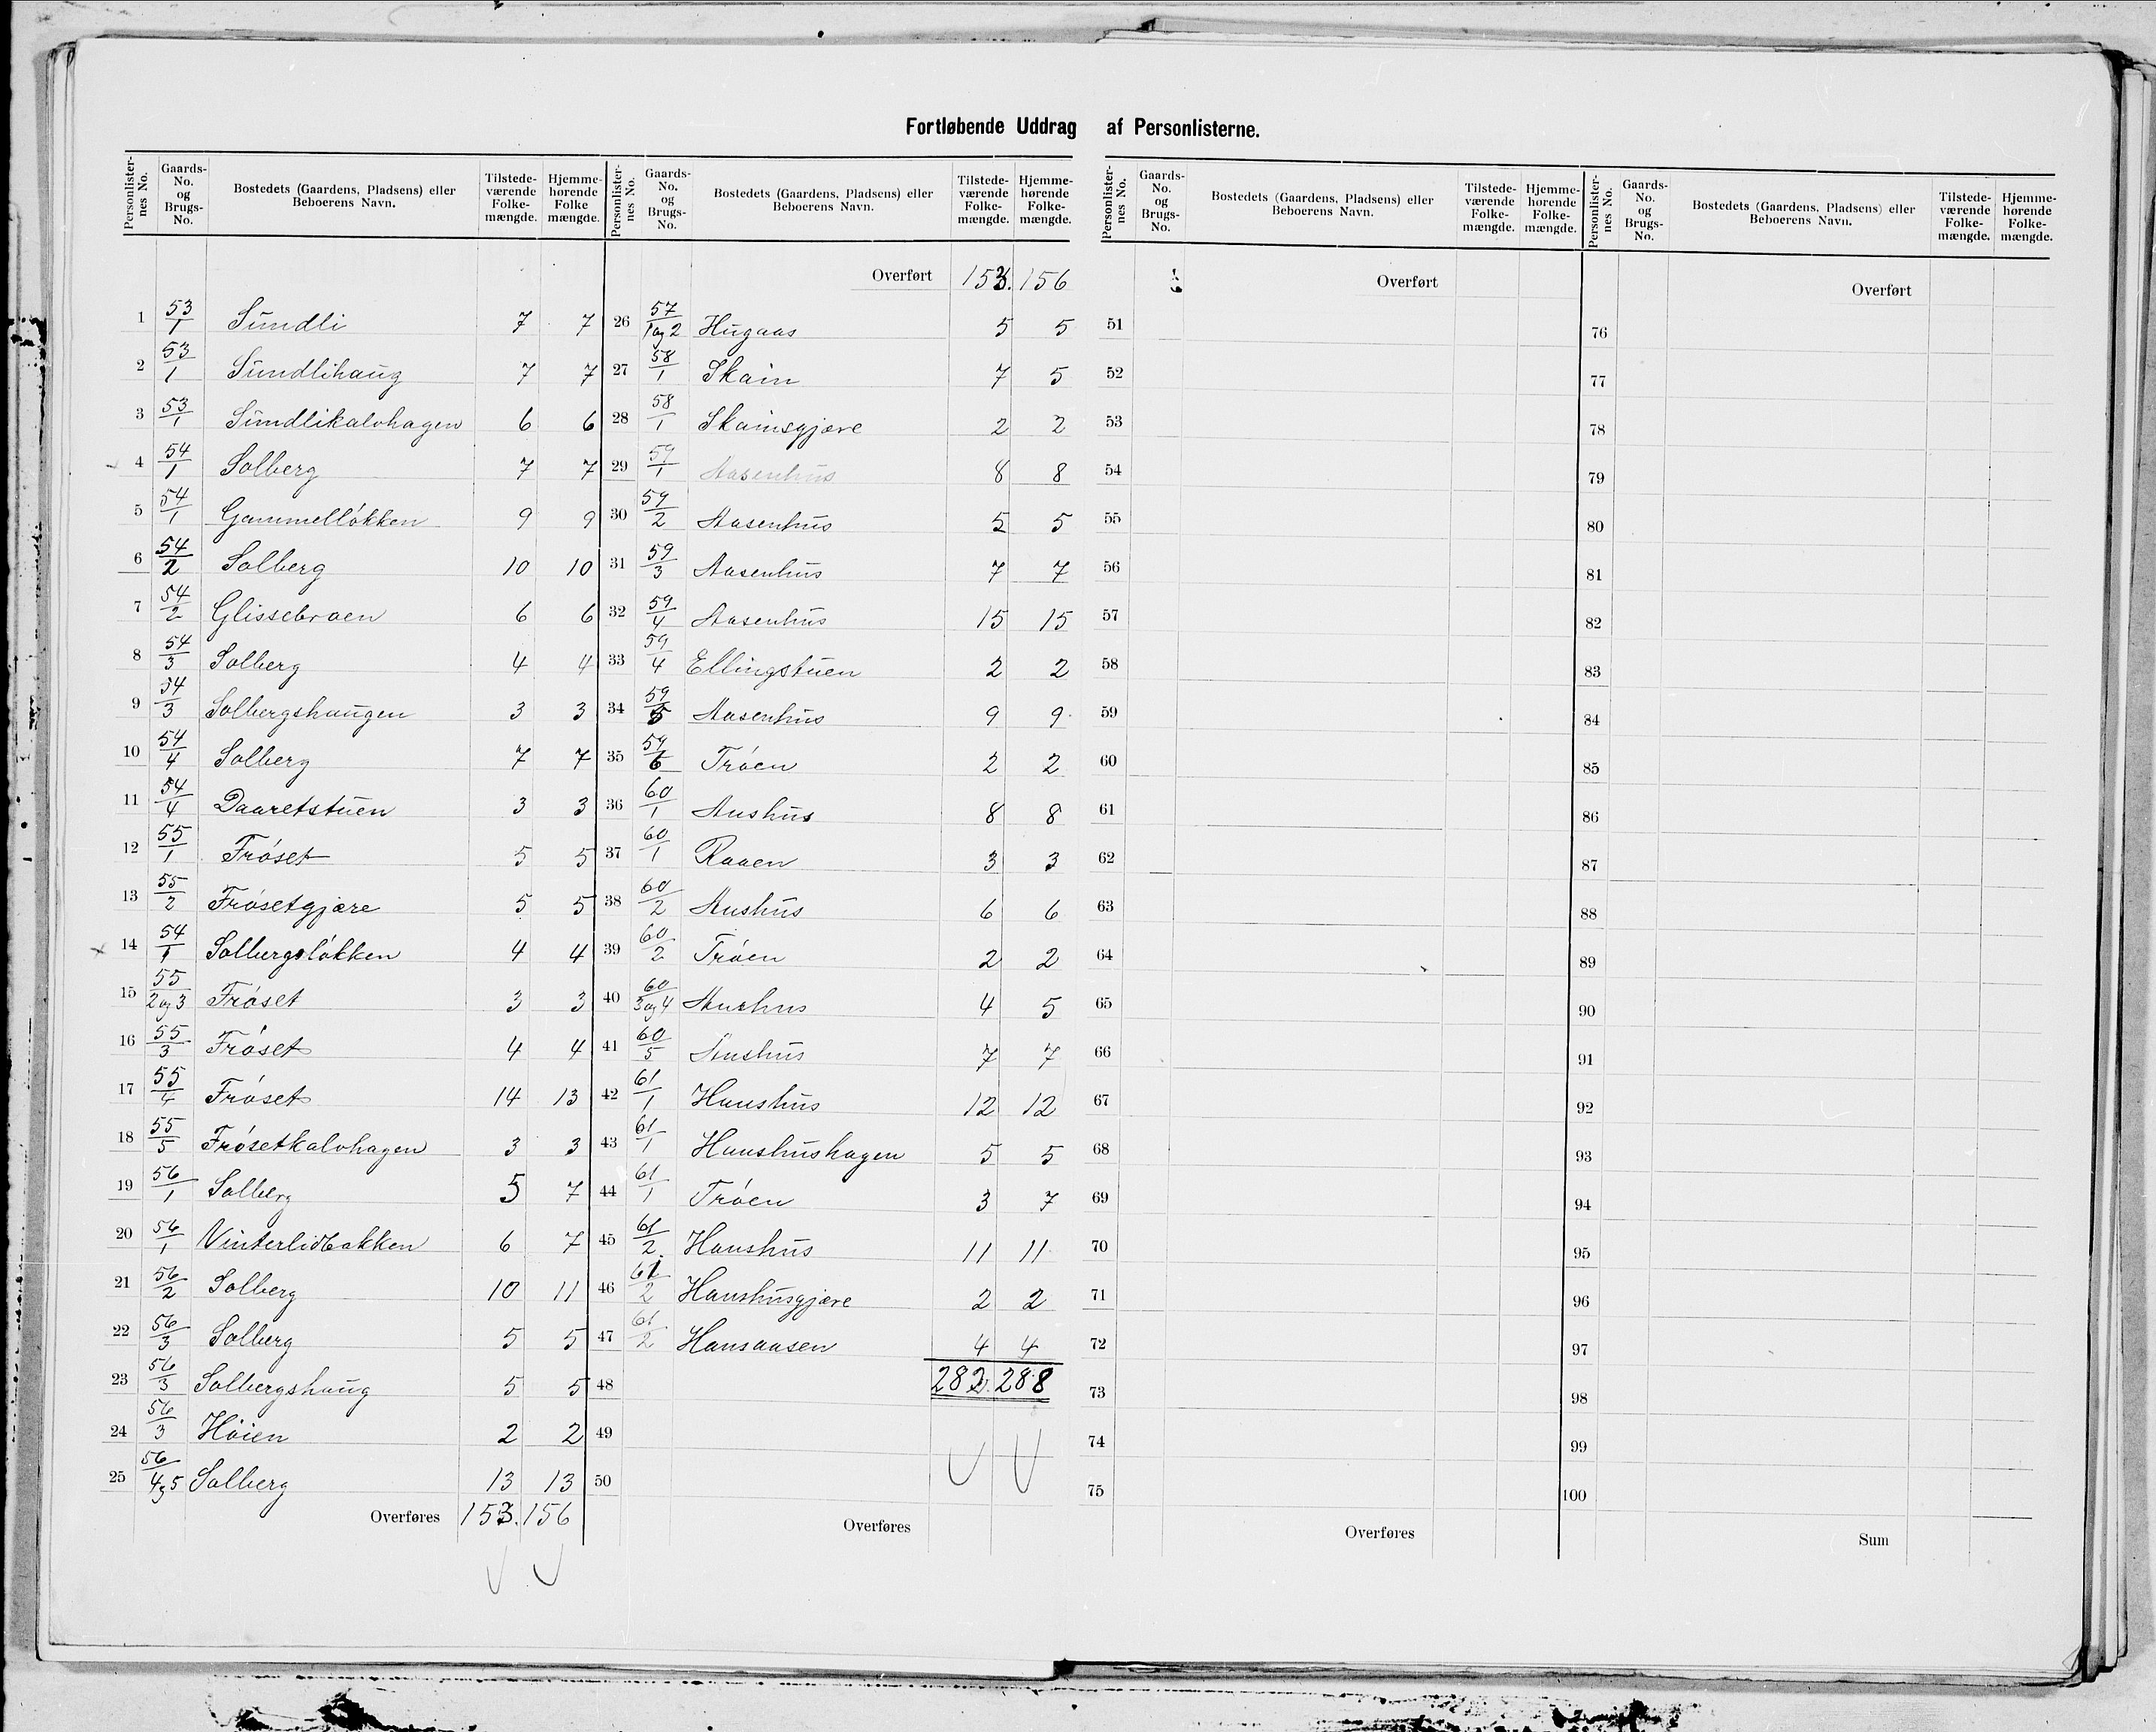 Fortløbende Uddrag af Personlisterne.
Personlister-nes No. Gaards-No. og Brugs-No. Bostedets (Gaardens, Pladsens) eller Beboerens Navn. Tilstede-værende Folke-mængde. Hjemme-hørende Folke mængde.
1 53/1 Sundli 7 7
2 53/1 Sundlihaug 7 7
3 53/1 Sundlikalvhagen 6 6
4 54/1 Solberg 7 7
5 54/1 Gammelløkken 9 9
6 54/2 Solberg 10 10
7 54/2 Glissebroen 6 6
8 54/3 Solberg 4 4
9 54/3 Solbergshaugen 3 3
10 54/4 Solberg 7 7
11 54/4 Daaretstuen 3 3
12 55/1 Frøset 5 5
13 55/2 Frøsetgjære 5 5
14 54/1 Solbergsløkken 4 4
15 55/2 og 3 Frøset 3 3
16 55/3 Frøset 4 4
17 55/4 Frøset 14 13
18 55/5 Frøsetkalvhagen 3 3
19 56/1 Solberg 5 7
20 56/1 Vinterlidbakken 6 7
21 56/2 Solberg 10 11
22 56/3 Solberg 5 5
23 56/3 Solbergshaug 5 5
24 56/3 Høien 2 2
25 56/4 og 5 Solberg 13 13
Overføres 153. 156
Personlister-nes No. Gaards-No. og Brugs-No. Bostedets (Gaardens, Pladsens) eller Beboerens Navn. Tilstede-værende Folke-mængde. Hjemme-hørende Folke-mængde.
Overført 153. 156
26 57/1 og 2 Hugaas 5 5
27 58/1 Skain 7 5
28 58/1 Skainsgjære 2 2
29 59/1 Aasenhus 8 8
30 59/2 Aasenhus 5 5
31 59/3 Aasenhus 7 7
32 59/4 Aasenhus 15 15
33 59/4 Ellingstuen 2 2
34 59/5 Aasenhus 9 9
35 59/6 Trøen 2 2
36 60/1 Aushus 8 8
37 60/1 Raaen 3 3
38 60/2 Aushus 6 6
39 60/2 Trøen 2 2
40 60/3 og 4 Aushus 4 5
41 60/5 Aushus 7 7
42 61/1 Haushus 12 12
43 61/1 Haushushagen 5 5
44 61/1 Trøen 3 7
45 61/2 Haushus 11 11
46 61/2 Haushusgjære 2 2
47 61/2 Hansaasen 4 4
48 282. 288
49
50
Overføres
Personlister-nes No. Gaards-No. og Brugs-No. Bostedets (Gaardens, Pladsens) eller Beboerens Navn. Tilstede-værende Folke-mængde. Hjemme-hørende Folke-mængde.
Overført
51
52
53
54
55
56
57
58
59
60
61
62
63
64
65
66
67
68
69
70
71
72
73
74
75
Overføres
Personlister-nes No. Gaards-No. og Brugs-No. Bostedets (Gaardens, Pladsens) eller Beboerens Navn. Tilstede-værende Folke-mængde. Hjemme-hørende Folke-mængde.
Overført
76
77
78
79
80
81
82
83
84
85
86
87
88
89
90
91
92
93
94
95
96
97
98
99
100
Sum